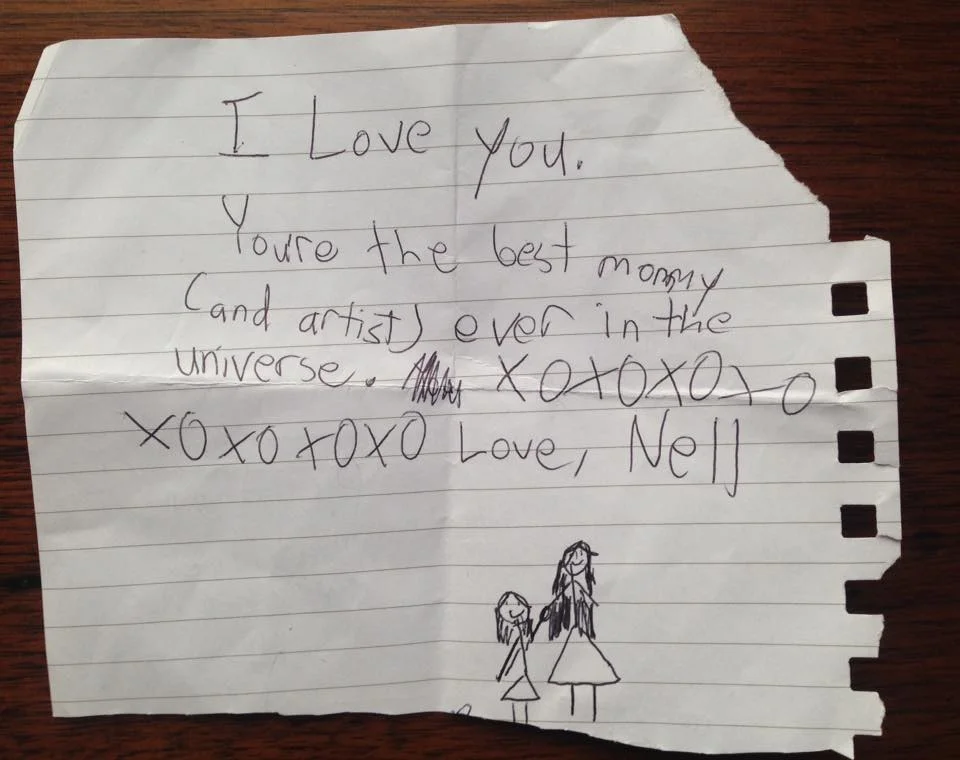 I Love you.
Youre the best mommy
(and artist) ever in the
universe. XOXOXOXO
XOXOXOXO Love, Nell